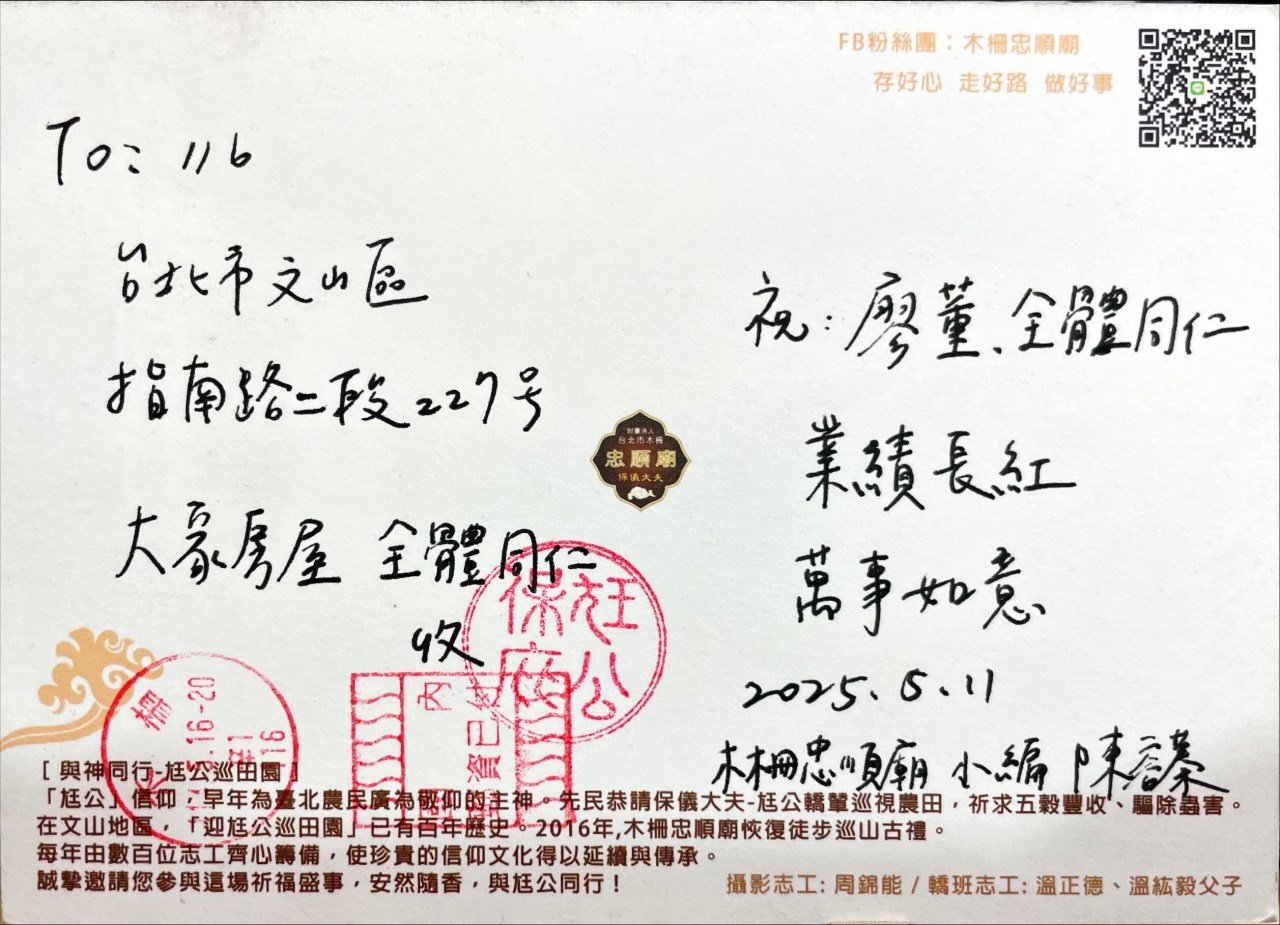 FB粉絲團：木柵忠順廟
存好心 走好路 做好事
To: 116
台北市文山區
指南路二段227号
大家房屋 全體同仁
收
祝: 廖董、全體同仁
業績長紅
萬事如意
2025.5.11
木柵忠順廟 小編 陳
財團法人
台北市木柵
忠順廟
保儀大夫
尪公
保庇
國內郵資已付
[ 與神同行-尪公巡田園 ]
「尪公」信仰，早年為臺北農民廣為敬仰的主神。先民恭請保儀大夫-尪公轎輦巡視農田，祈求五穀豐收、驅除蟲害。
在文山地區，「迎尪公巡田園」已有百年歷史。2016年,木柵忠順廟恢復徒步巡山古禮。
每年由數百位志工齊心籌備，使珍貴的信仰文化得以延續與傳承。
誠摯邀請您參與這場祈福盛事，安然隨香，與尪公同行！
攝影志工: 周錦能 / 轎班志工: 溫正德、溫紘毅父子